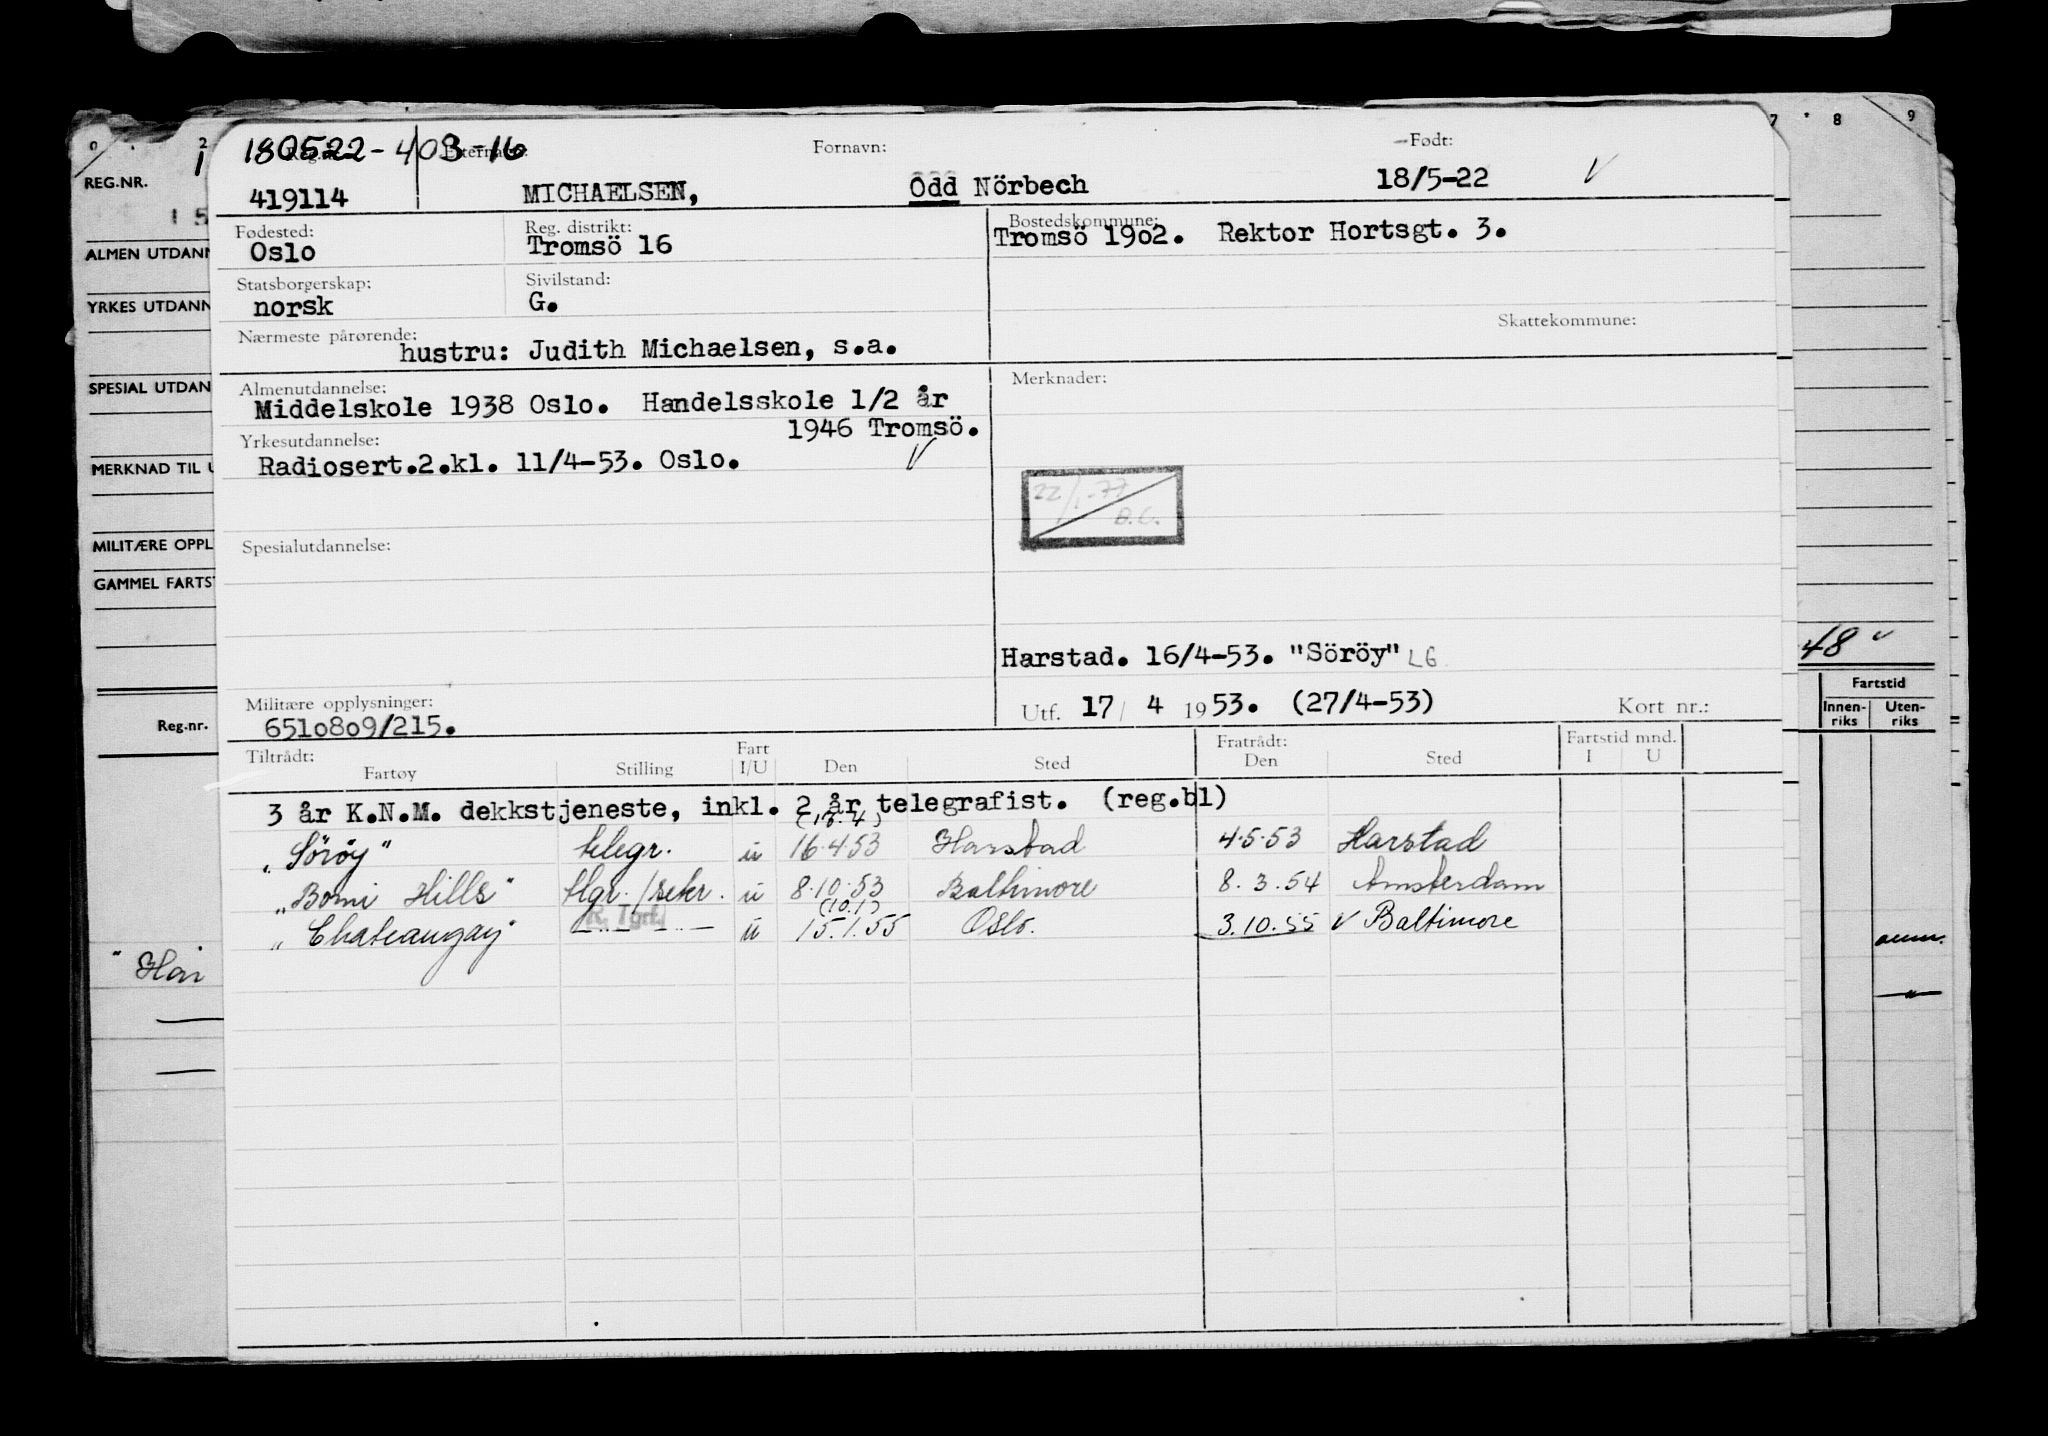 0 2 7 8 9
180522-403-16
Etternavn: Fornavn: Født:
REG.NR. 1
419114 MICHAELSEN, Odd Nörbech 18/5-22 V
15
Fødested: Reg. distrikt: Bostedskommune:
Oslo Tromsö 16 Tromsö 1902. Rektor Hortsgt. 3.
ALMEN UTDANN
Statsborgerskap: Sivilstand:
norsk G.
YRKES UTDANN
Skattekommune:
Nærmeste pårørende:
hustru: Judith Michaelsen, s.a.
SPESIAL UTDAN
Almenutdannelse: Merknader:
Middelskole 1938 Oslo. Handelsskole 1/2 år
1946 Tromsö.
Yrkesutdannelse:
Radiosert.2.kl. 11/4-53. Oslo. V
MERKNAD TIL U
22/1-77
B.C.
MILITÆRE OPPL
Spesialutdannelse:
GAMMEL FARTST
48 v
Harstad. 16/4-53. "Söröy" LG
Militære opplysninger:
6510809/215. Utf. 17/ 4 1953. (27/4-53) Kort nr.:
Fartstid
Innen-riks Uten-riks
Reg.nr.
Tiltrådt: Fratrådt: Fartstid mnd.
Fartøy Stilling Fart I/U Den Sted Den Sted I U
3 år K.N.M. dekkstjeneste, inkl. 2 år telegrafist. (reg.bl)
„Söröy" telegr. u 16.4.53 Harstad 4.5.53 Harstad
„Bomi Hills" tlgr./sekr. u 8.10.53 Baltimore 8.3.54 Amsterdam
R. Tgrf. (10.1)
„Chateaugay" —"— —"— u 15.1.55 Oslo. 3.10.55 V Baltimore
"Hai